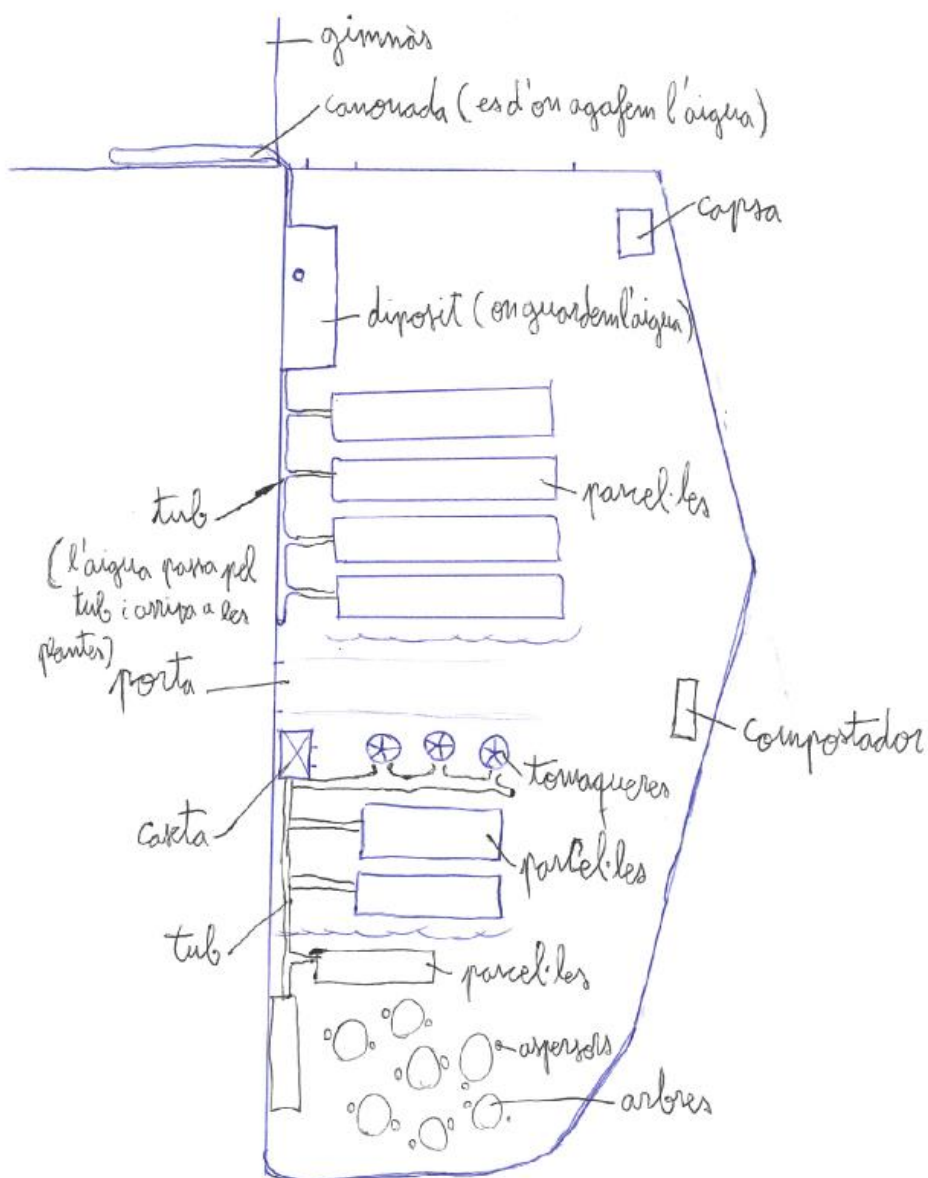 gimnàs
canonada (es d'on agafem l'aigua)
capsa
diposit (on guardem l'aigua)
parcel·les
tub
(l'aigua passa pel
tub i arriva a les
plantes)
porta
compostador
tomaqueres
caseta
parcel·les
tub
parcel·les
aspersors
arbres